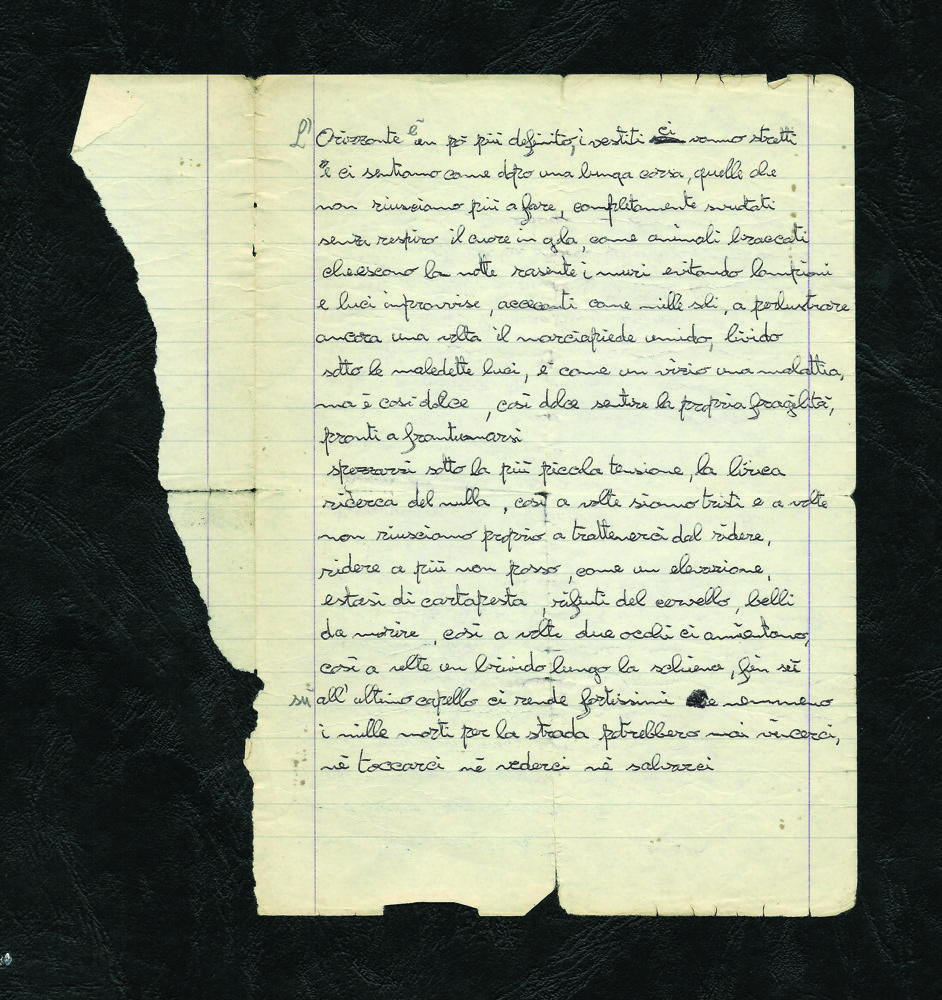 L'Orizzonte è un pò più definito, i vestiti ci vanno stretti
e ci sentiamo come dopo una lunga corsa, quelle che
non riusciamo più a fare, completamente svuotati
senza respiro il cuore in gola, come animali braccati
che escono la notte rasente i muri evitando lampioni
e luci improvvise, accecanti come mille soli, a perlustrare
ancora una volta il marciapiede umido, livido
sotto le maledette luci, è come un vizio una malattia,
ma è così dolce, così dolce sentire la propria fragilità,
pronti a frantumarsi
spezzarsi sotto la più piccola tensione, la lirica
ricerca del nulla, così a volte siamo tristi e a volte
non riusciamo proprio a trattenerci dal ridere,
ridere a più non posso, come un elevazione,
estasi di cartapesta, rifiuti del cervello, belli
da morire, così a volte due occhi ci annientano,
così a volte un brivido lungo la schiena, fin sù
sù all'ultimo capello ci rende fortissimi che nemmeno
i mille morti per la strada potrebbero mai vincerci,
nè toccarci nè vederci nè salvarci